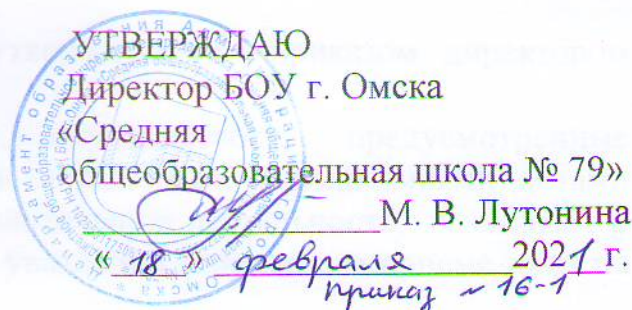 УТВЕРЖДАЮ
Директор БОУ г. Омска
«Средняя
общеобразовательная школа № 79»
М. В. Лутонина
« 18 » февраля 2021 г.
приказ № 16-1